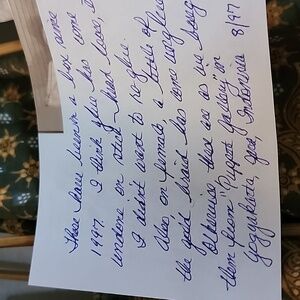 These have been in a box since
1997. I think glue has come
undone on stick - head loose, I
didn't want to re-glue.
Also on female, a little of
the gold braid has come unglued
Otherwise they are as we bought
them from "Puppet Gallery" in
Yoggakarta, Java, Indonesia
8/97